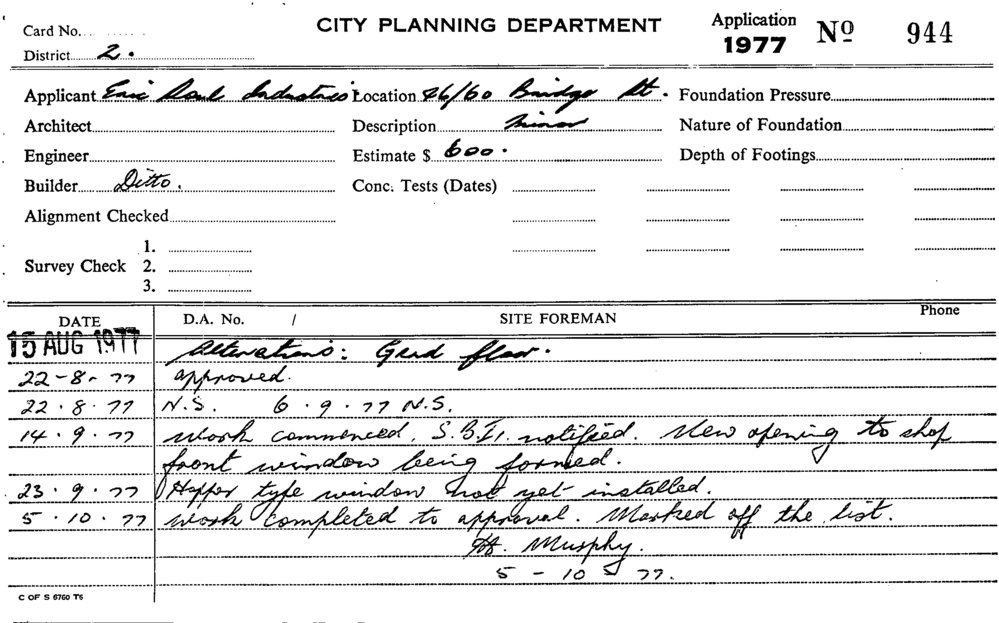 Card No.
CITY PLANNING DEPARTMENT
Application 1977 No 944
District 2.
Applicant Eric Paul Industries Location 26/60 Bridge St. Foundation Pressure
Architect Description Minor Nature of Foundation
Engineer Estimate $ 600. Depth of Footings
Builder Ditto. Conc. Tests (Dates)
Alignment Checked
1.
Survey Check 2.
3.
DATE D.A. No. / SITE FOREMAN Phone
15 AUG 1977 Alterations: Grd floor.
22-8-77 approved.
22.8.77 N.S. 6.9.77 N.S.
14.9.77 Work commenced, S.B.I. notified. New opening to shop
front window being formed.
23.9.77 Hopper type window not yet installed.
5.10.77 Work completed to approval. Marked off the list.
Murphy.
5-10-77.
C OF S 6760 T6